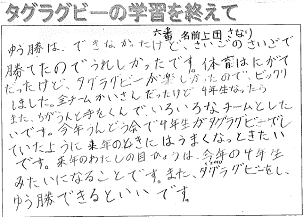 タグラグビーの学習を終えて
六番 名前 上田 さなり
ゆう勝は、できなかったけど、さいごのさいごで
勝てたのでうれしかったです。体育はにがて
だったけど、タグラグビーが楽しかったので、ビックリ
しました。全チームかいさんだったけど4年生なったら
また、ちがう人と手をくんで、いろいろなチームとした
いです。今年うんどう会で4年生がタグラグビーでし
ていたように来年のときにはうまくなっときたい
です。来年のわたしの目ひょうは、今年の4年生
みたいになることです。また、タグラグビーをし、
ゆう勝できるといいです。